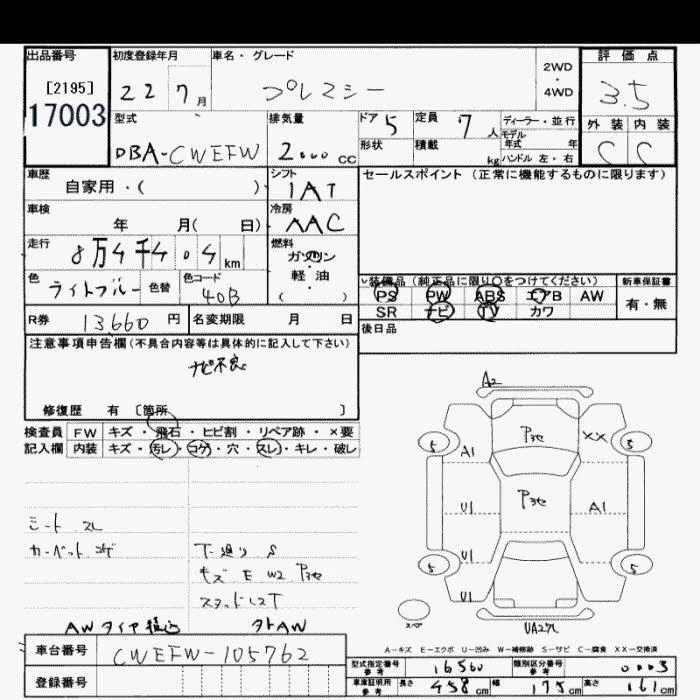 出品番号 初度登録年月 車名・グレード 評価点
[2195] 22 7月 プレマシー 2WD・4WD 3.5
17003
外装 内装
C C
型式 排気量 ドア 5 定員 7人 ディーラー・並行
モデル
年式 年
DBA-CWEFW 2000cc 形状 積載 kg ハンドル 左・右
車歴 シフト セールスポイント (正常に機能するものに限ります)
自家用・( ) IAT
車検 冷房
年 月( 日) AAC
走行 燃料
8万4千404km ガソリン
軽・油
( )
色 ライトブルー 色替 色コード 40B
装備品 (純正品に限り○をつけてください) 新車保証書
PS PW ABS エアB AW 有・無
SR ナビ TV カワ
R券 13660円 名変期限 月 日 後日品
注意事項申告欄(不具合内容等は具体的に記入して下さい)
ナビ不良
修復歴 有 [箇所 ]
検査員 FW キズ・飛石・ヒビ割・リペア跡・×要
記入欄 内装 キズ・汚レ・コゲ・穴・スレ・キレ・破レ
A2
5 A1 Pヨセ XX 5
U1 Pヨセ A1
U1
5 U1 5
スペア
シート スレ
カーペット コゲ 下廻り S
キズ E W2 Pヨセ
スタッドレスT
AWタイヤ積込 外AW
A-キズ E-エクボ U-凹み W-補修跡 S-サビ C-腐食 XX-交換済
車台番号 CWEFW-105762
型式指定番号 参考 16560 類別区分番号 参考 0003
登録番号
車庫証明用 参考 長さ 458cm 幅 175cm 高さ 161cm